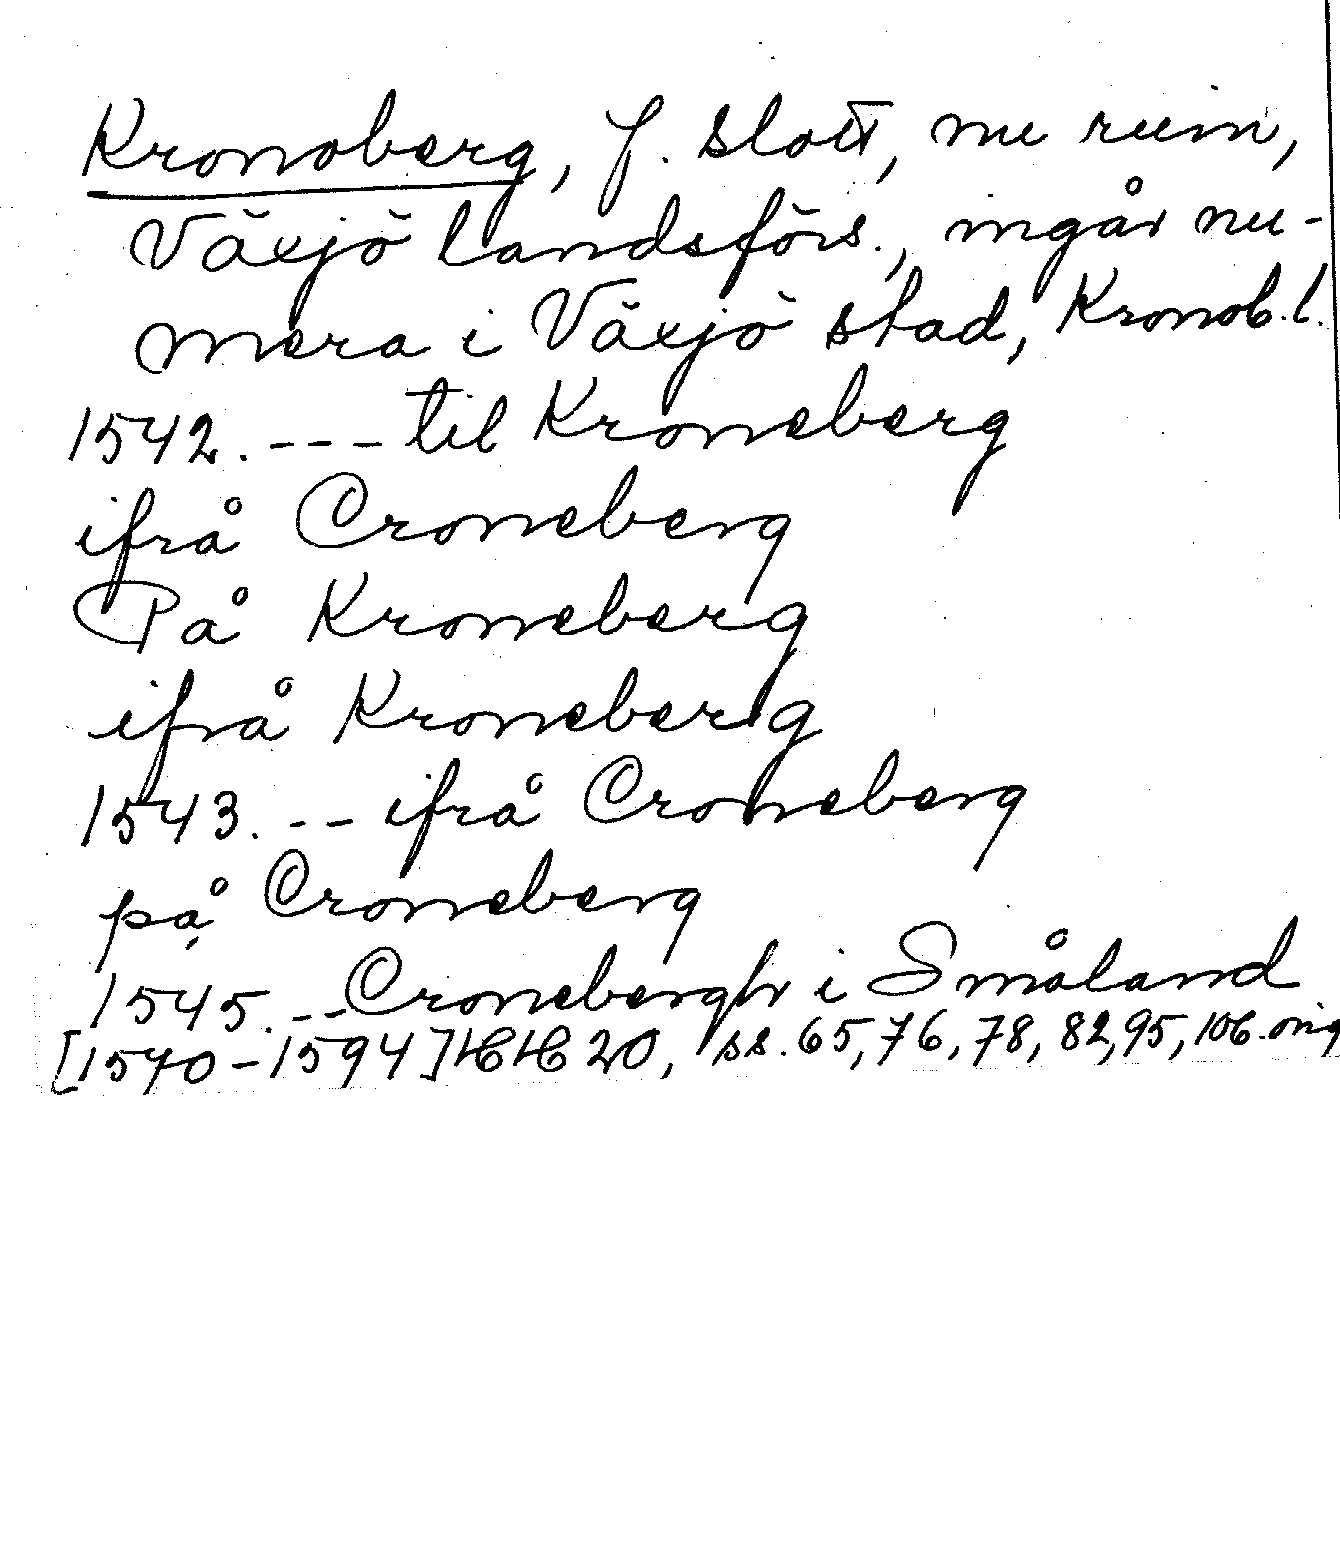 Kronoberg, f. slott, nu ruin,
Växjö landsförs., ingår nu-
mera i Växjö stad, Kronob.l.
1542. --- til Kroneberg
ifrå Croneberg
På Kroneberg
ifrå Kroneberg
1543. -- ifrå Croneberg
på Croneberg
1545. -- Cronebergh i Småland
[1540-1594] HH 20, ss. 65, 76, 78, 82, 95, 106. orig